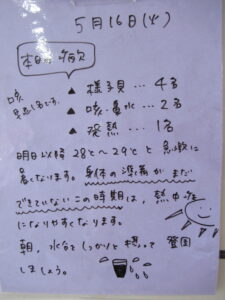 5月16日(火)
本日の病欠
▲ 様子見…4名
▲ 咳・鼻水…2名
▲ 発熱…1名
咳
早退1名です。
明日以降 28℃〜29℃と急激に
暑くなります。身体の準備がまだ
できていないこの時期は、熱中症
になりやすくなります。
朝、水分をしっかりと摂って登園
しましょう。